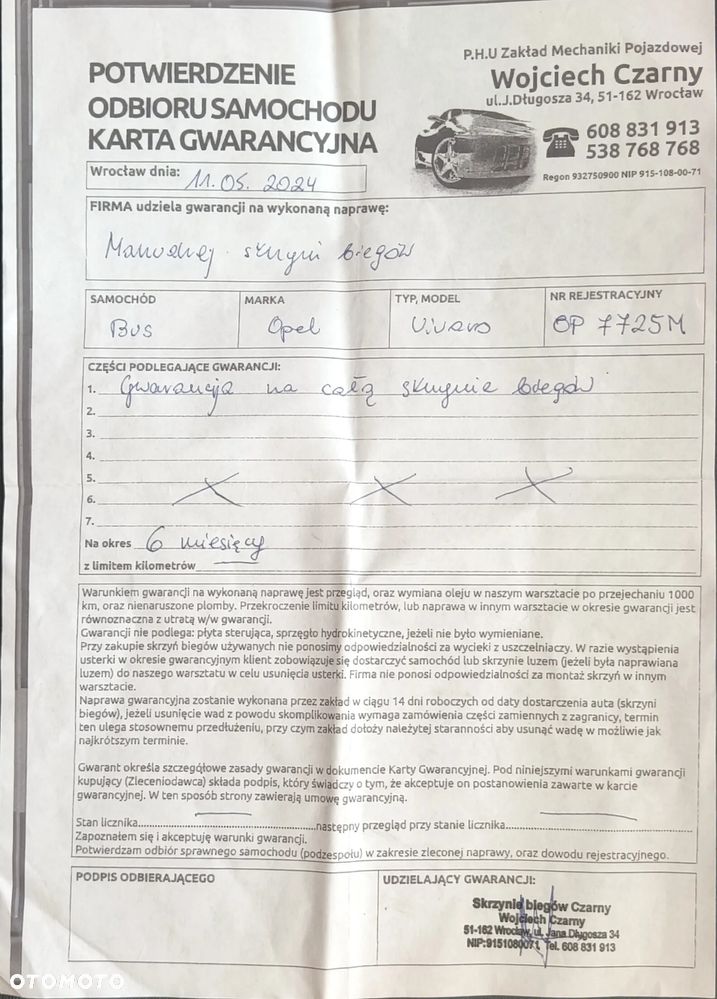 POTWIERDZENIE
ODBIORU SAMOCHODU
KARTA GWARANCYJNA
P.H.U Zakład Mechaniki Pojazdowej
Wojciech Czarny
ul.J.Długosza 34, 51-162 Wrocław
608 831 913
538 768 768
Regon 932750900 NIP 915-108-00-71
Wrocław dnia: 11.05.2024
FIRMA udziela gwarancji na wykonaną naprawę:
Manualnej skrzyni biegów
SAMOCHÓD MARKA TYP, MODEL NR REJESTRACYJNY
Bus Opel Vivaro OP 7725M
CZĘŚCI PODLEGAJĄCE GWARANCJI:
1. Gwarancja na całą skrzynie biegów
2.
3.
4.
5.
6.
7.
Na okres 6 miesięcy
z limitem kilometrów
Warunkiem gwarancji na wykonaną naprawę jest przegląd, oraz wymiana oleju w naszym warsztacie po przejechaniu 1000
km, oraz nienaruszone plomby. Przekroczenie limitu kilometrów, lub naprawa w innym warsztacie w okresie gwarancji jest
równoznaczna z utratą w/w gwarancji.
Gwarancji nie podlega: płyta sterująca, sprzęgło hydrokinetyczne, jeżeli nie było wymieniane.
Przy zakupie skrzyń biegów używanych nie ponosimy odpowiedzialności za wycieki z uszczelniaczy. W razie wystąpienia
usterki w okresie gwarancyjnym klient zobowiązuje się dostarczyć samochód lub skrzynie luzem (jeżeli była naprawiana
luzem) do naszego warsztatu w celu usunięcia usterki. Firma nie ponosi odpowiedzialności za montaż skrzyń w innym
warsztacie.
Naprawa gwarancyjna zostanie wykonana przez zakład w ciągu 14 dni roboczych od daty dostarczenia auta (skrzyni
biegów), jeżeli usunięcie wad z powodu skomplikowania wymaga zamówienia części zamiennych z zagranicy, termin
ten ulega stosownemu przedłużeniu, przy czym zakład dołoży należytej staranności aby usunąć wadę w możliwie jak
najkrótszym terminie.
Gwarant określa szczegółowe zasady gwarancji w dokumencie Karty Gwarancyjnej. Pod niniejszymi warunkami gwarancji
kupujący (Zleceniodawca) składa podpis, który świadczy o tym, że akceptuje on postanowienia zawarte w karcie
gwarancyjnej. W ten sposób strony zawierają umowę gwarancyjną.
Stan licznika..............................następny przegląd przy stanie licznika..............................
Zapoznałem się i akceptuję warunki gwarancji.
Potwierdzam odbiór sprawnego samochodu (podzespołu) w zakresie zleconej naprawy, oraz dowodu rejestracyjnego.
PODPIS ODBIERAJĄCEGO UDZIELAJĄCY GWARANCJI:
Skrzynie biegów Czarny
Wojciech Czarny
51-162 Wrocław, ul. Jana Długosza 34
NIP:9151080071, Tel. 608 831 913
OTOMOTO